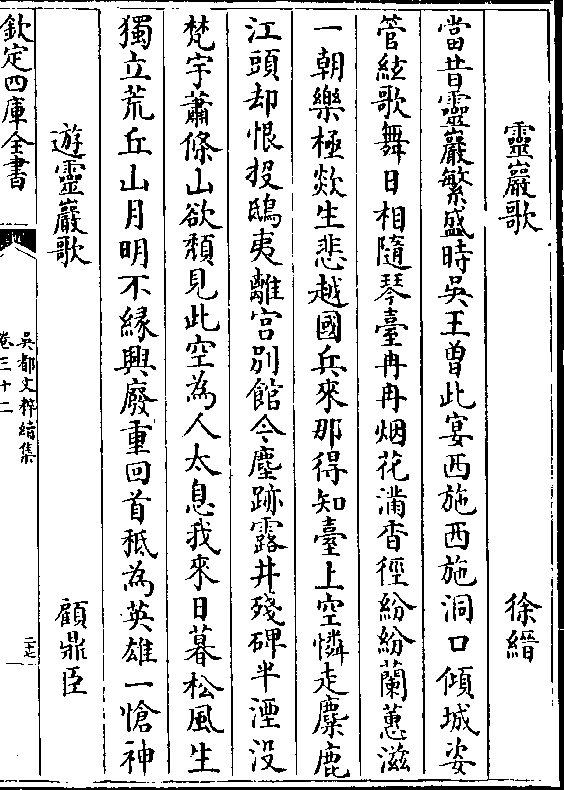 靈巖歌　徐縉
當昔靈巖繁盛時吳王曾此宴西施西施洞口傾城姿
管絃歌舞日相隨琴臺冉冉烟花滿香徑紛紛蘭蕙滋
一朝樂極歘生悲越國兵來那得知臺上空憐走麋鹿
江頭却恨投鴟夷離宫别館今塵跡露井殘碑半湮没
梵宇蕭條山欲頽見此空為人太息我來日暮松風生
獨立荒丘山月明不緣興廢重回首秪為英雄一愴神
遊靈巖歌　顧鼎臣
欽定四庫全書
吳都文粹續集
卷三十二